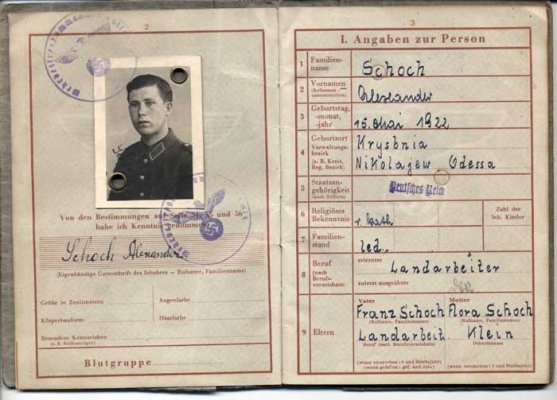 2
Von den Bestimmungen auf Seite
und 56
habe ich Kenntnis genommen
Schoch Alexander
(Eigenhändige Unterschrift des Inhabers — Rufname, Familienname)
Größe in Zentimetern
Augenfarbe
Körperbauform
Haarfarbe
Besondere Kennzeichen
(z. B. Brillenträger)
Blutgruppe
3
I. Angaben zur Person
1 Familien-
name
Schoch
2 Vornamen
(Rufnamen
unterstreichen)
Alexander
3 Geburtstag,
-monat,
-jahr
15. Mai 1922
4 Geburtsort
Verwaltungs-
bezirk
(z. B. Kreis,
Reg.-Bezirk)
Krysonia
Nikolajew Odessa
5 Staatsan-
gehörigkeit
Deutsches Reich
6 Religiöses
Bekenntnis
r. kath
Zahl der
leb. Kinder
7 Familien-
stand
led.
8 Beruf
(nach
Berufs-
verzeichnis)
erlernter
Landarbeiter
zuletzt ausgeübter
9 Eltern
Vater
Mutter
Franz Schoch
Flora Schoch
(Rufname, Familienname)
(Rufname, Familienname)
Landarbeit.
Klein
Beruf (nach Berufsverzeichnis)
Geburtsname
(wenn verstorben: † und Sterbejahr)
(wenn gefallen: gef. und Jahr)
(wenn verstorben: † und Sterbejahr)